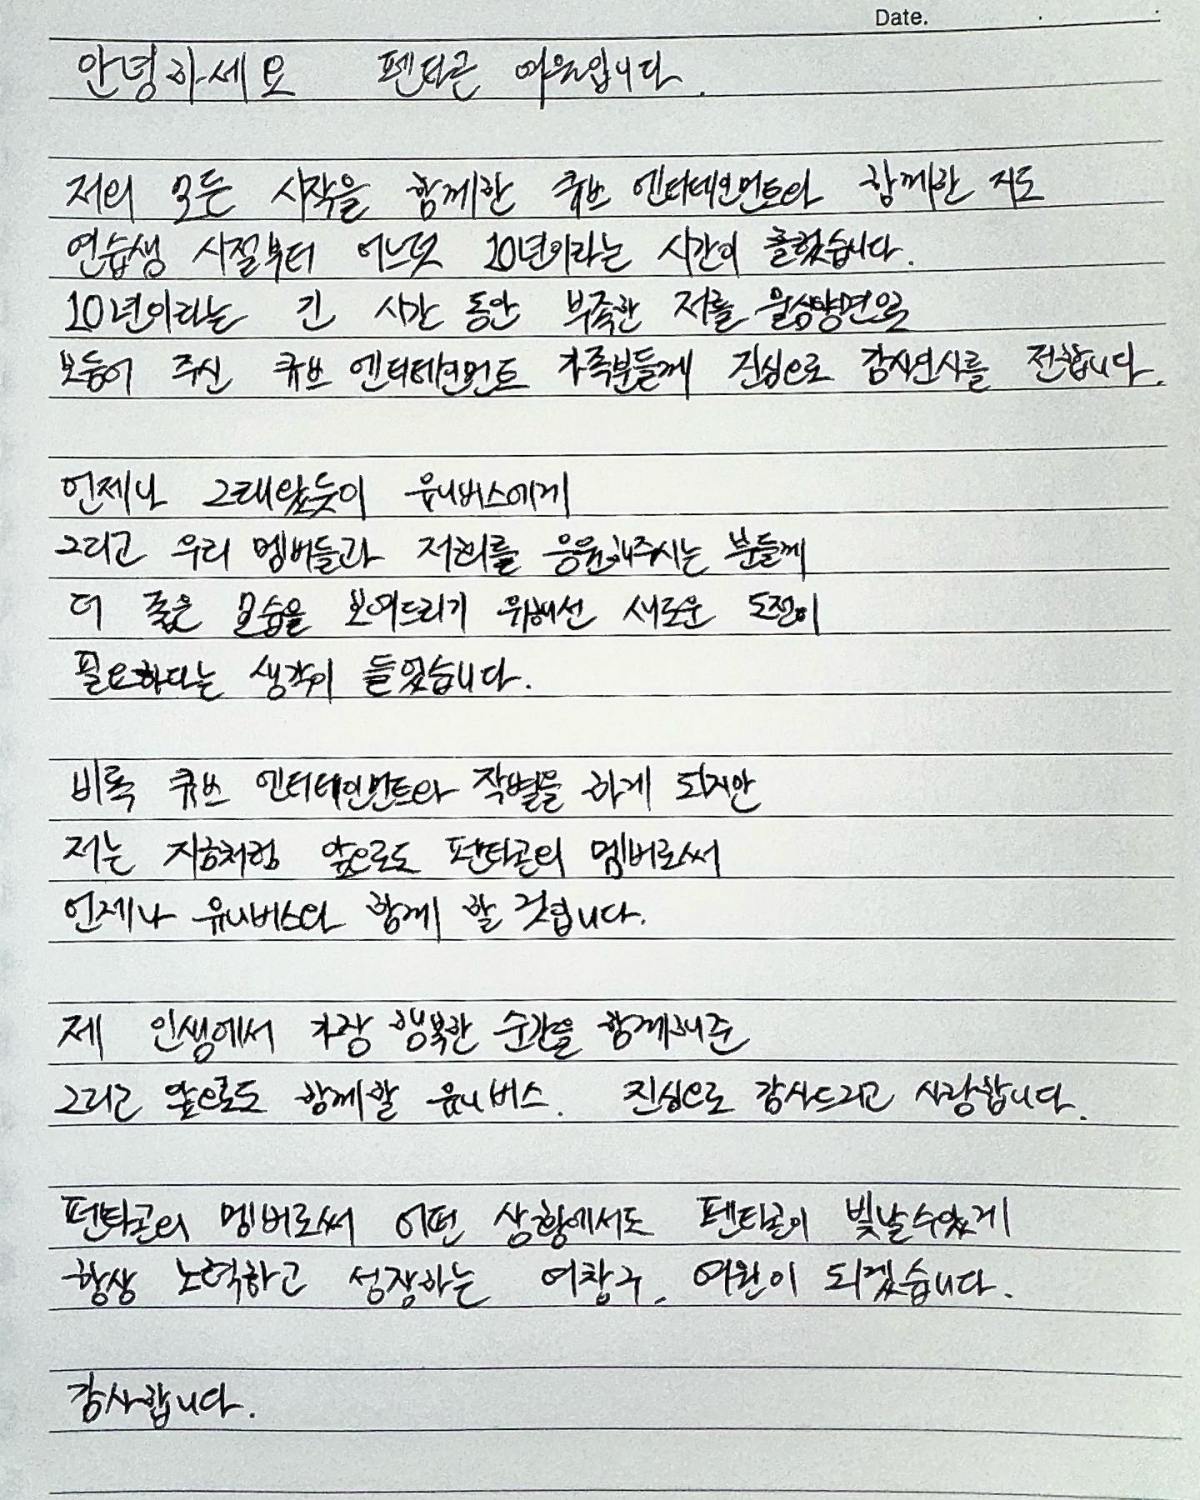 Date.
안녕하세요 펜타곤 여원입니다.
저의 모든 시작을 함께한 큐브 엔터테인먼트와 함께한 지도
연습생 시절부터 어느덧 10년이라는 시간이 흘렀습니다.
10년이라는 긴 시간 동안 부족한 저를 물심양면으로
보듬어 주신 큐브 엔터테인먼트 가족분들께 진심으로 감사인사를 전합니다.
언제나 그래왔듯이 유니버스에게
그리고 우리 멤버들과 저희를 응원해주시는 분들께
더 좋은 모습을 보여드리기 위해선 새로운 도전이
필요하다는 생각이 들었습니다.
비록 큐브 엔터테인먼트와 작별을 하게 되지만
저는 지금처럼 앞으로도 펜타곤의 멤버로써
언제나 유니버스와 함께 할 것입니다.
제 인생에서 가장 행복한 순간을 함께해준
그리고 앞으로도 함께할 유니버스. 진심으로 감사드리고 사랑합니다.
펜타곤의 멤버로써 어떤 상황에서도 펜타곤이 빛날수있게
항상 노력하고 성장하는 여창구, 여원이 되겠습니다.
감사합니다.